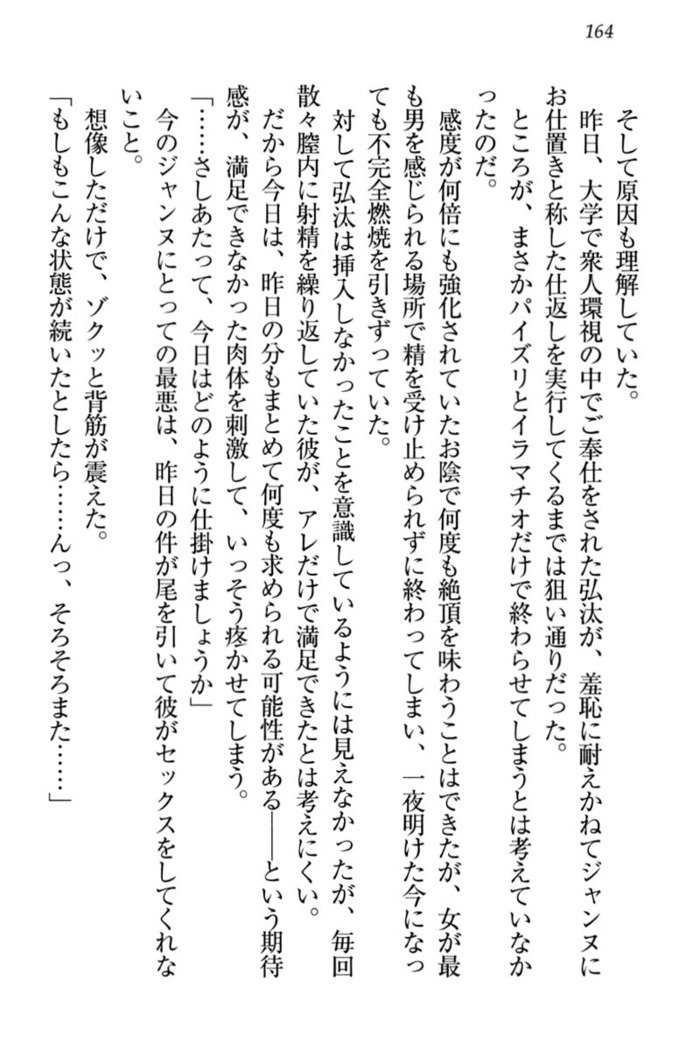 164
そして原因も理解していた。
昨日、大学で衆人環視の中でご奉仕をされた弘汰が、羞恥に耐えかねてジャンヌに
お仕置きと称した仕返しを実行してくるまでは狙い通りだった。
ところが、まさかパイズリとイラマチオだけで終わらせてしまうとは考えていなか
ったのだ。
感度が何倍にも強化されていたお陰で何度も絶頂を味わうことはできたが、女が最
も男を感じられる場所で精を受け止められずに終わってしまい、一夜明けた今になっ
ても不完全燃焼を引きずっていた。
対して弘汰は挿入しなかったことを意識しているようには見えなかったが、毎回
散々膣内に射精を繰り返していた彼が、アレだけで満足できたとは考えにくい。
だから今日は、昨日の分もまとめて何度も求められる可能性がある――という期待
感が、満足できなかった肉体を刺激して、いっそう疼かせてしまう。
「……さしあたって、今日はどのように仕掛けましょうか」
今のジャンヌにとっての最悪は、昨日の件が尾を引いて彼がセックスをしてくれな
いこと。
想像しただけで、ゾクッと背筋が震えた。
「もしもこんな状態が続いたとしたら……んっ、そろそろまた……」